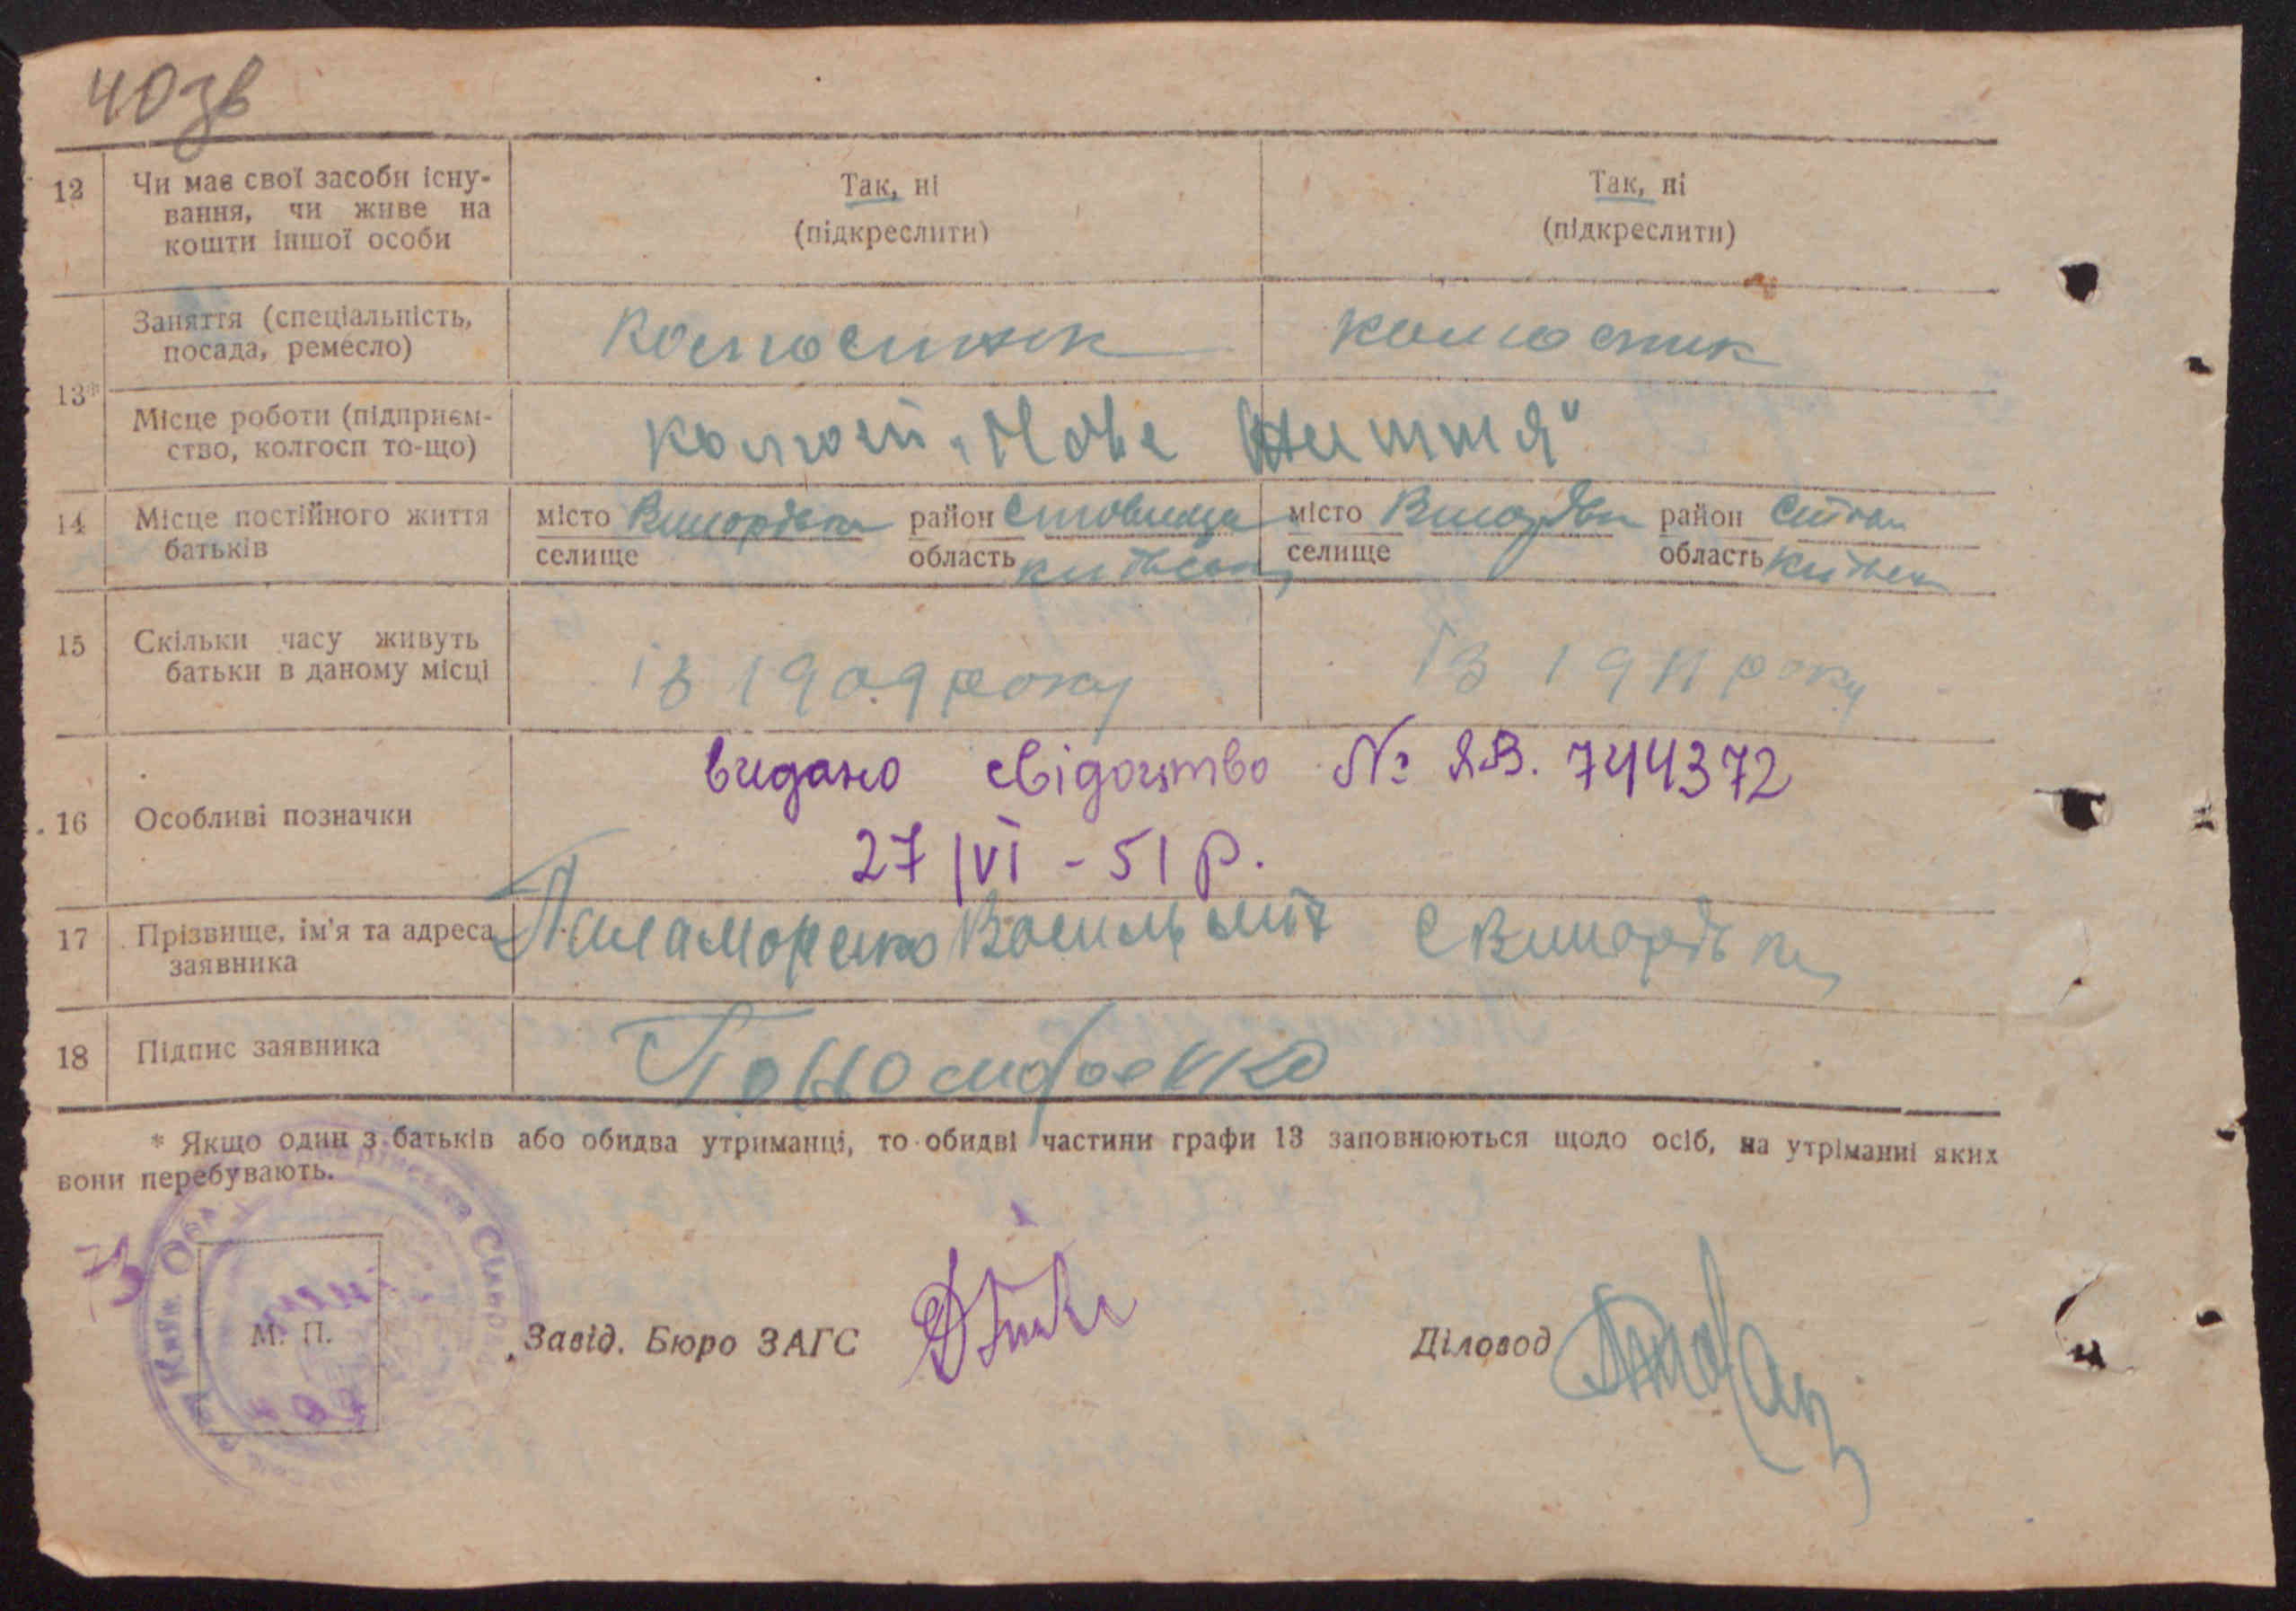 40зв
12 Чи має свої засоби існу- Так, ні Так, ні
вання, чи живе на (підкреслити) (підкреслити)
кошти іншої особи
13* Заняття (спеціальність, колгоспник колгоспник
посада, ремесло)
Місце роботи (підприєм- колгосп „Нове Життя"
ство, колгосп то-що)
14 Місце постійного життя місто район місто район
батьків селище область селище область
15 Скільки часу живуть
батьки в даному місці із 1909 року із 1911 року
видано свідоцтво № ЯВ. 744372
16 Особливі позначки
27/VI - 51 р.
17 Прізвище, ім'я та адреса Паламаренко
заявника
18 Підпис заявника
* Якщо один з батьків або обидва утриманці, то обидві частини графи 13 заповнюються щодо осіб, на утріманні яких
вони перебувають.
М. П. Завід. Бюро ЗАГС Діловод